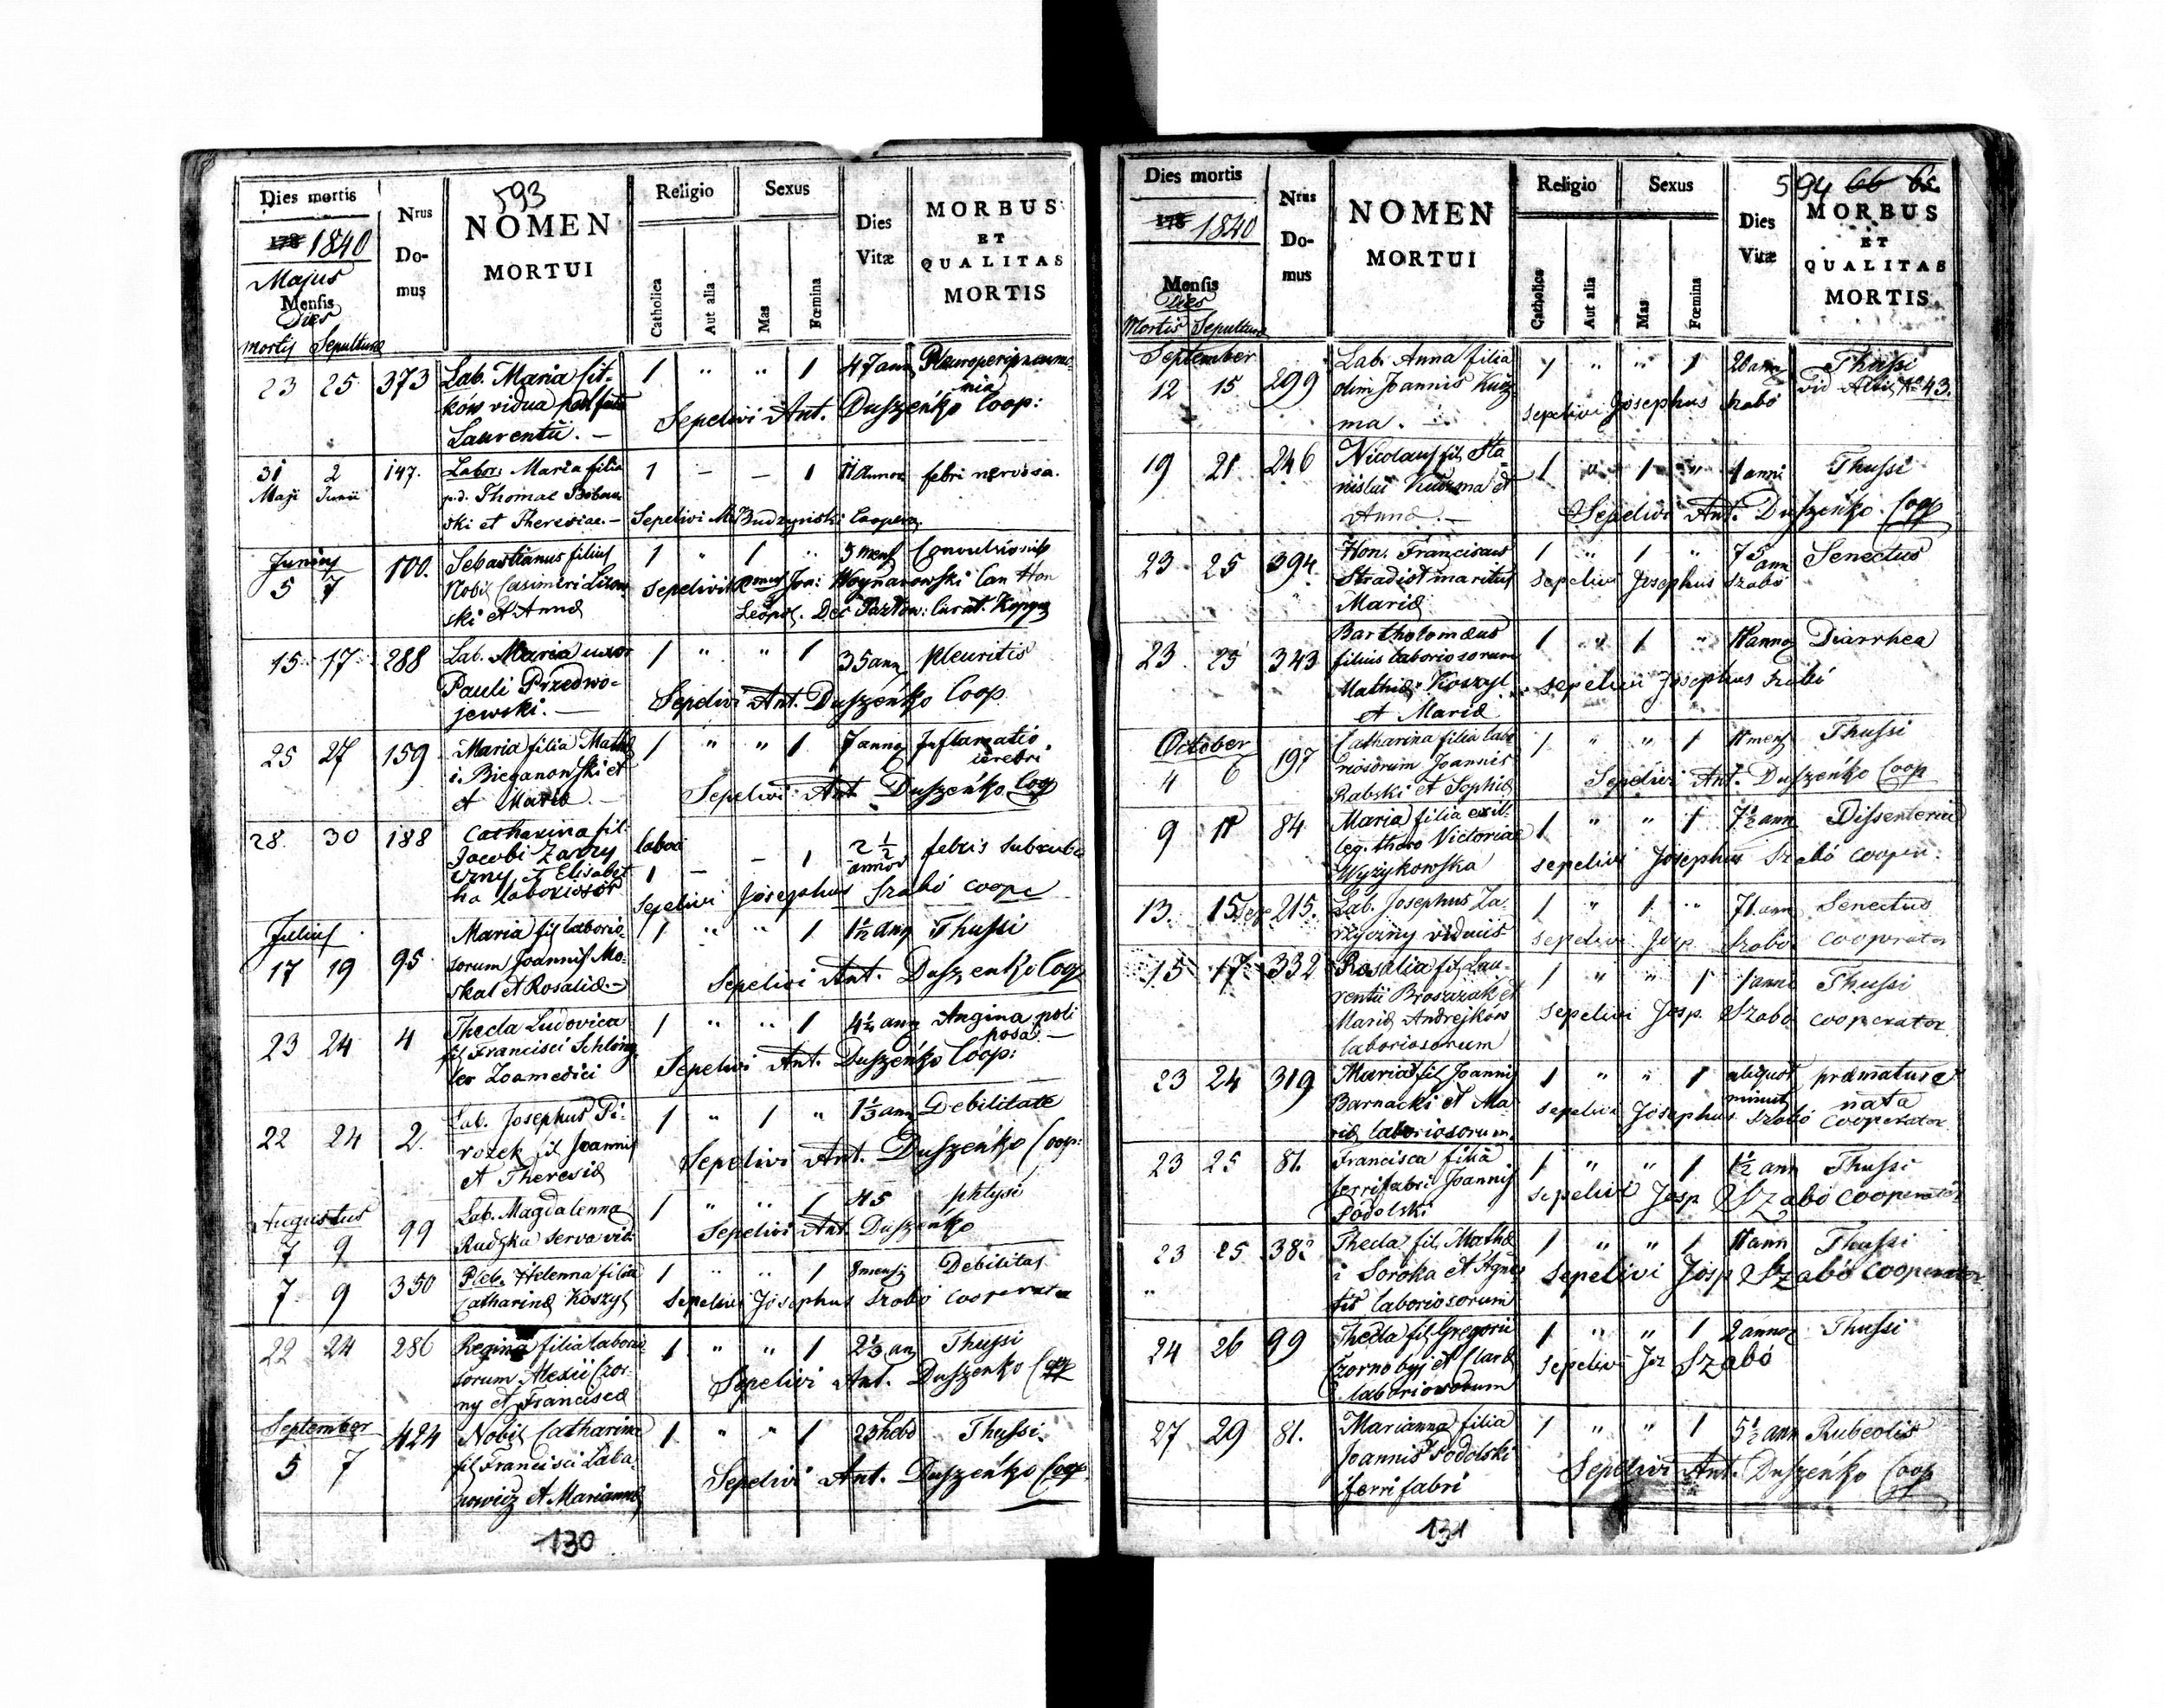 593
Dies mortis
Nrus Domus
NOMEN MORTUI
Religio
Sexus
Dies Vitæ
MORBUS ET QUALITAS MORTIS
178 1840
Majus
Mensis
Dies
Mortis Sepulturæ
Catholica
Aut alia
Mas
Fœmina
23 25 373 Lab. Maria Sit- 1 " " 1 47 ann Pleuroperipneumo
ków vidua nia
Laurentii. — Sepelivi Ant. Duszeńko Coop:
31 2 147. Labor. Maria filia 1 — — 1 febri nervosa.
Maji Junii p.d. Thomae
ski et Theresiae. — Sepelivi Budzynski Coopera
Junius
5 7 100. Sebastianus filius 1 " 1 " 3 mens Convulsionis
Nobil Casimiri
ski et Annæ Sepelivit Rmus Joa: Woynarowski Can Hon
Leopol. Dec Curat.
15 17 288 Lab. Maria uxor 1 " " 1 35 ann pleuritis
Pauli Przedwo-
jewski. — Sepelivi Ant. Duszeńko Coop
25 27 159 Maria filia Mathæ 1 " " 1 7 annor Inflamatio
i Bieganowski et cerebri
et Mariæ — Sepelivi Ant Duszeńko Coop
28. 30 188 Catharina fil. labor
Jacobi Zarzy 1 — — 1 2 1/2 febris
czny et Elisabet annor
ha laborioso Sepelivi Josephus Szabó coope
Julius
17 19 95 Maria fil laborio- 1 " " 1 1 1/2 ann Thussi
sorum Joannis Mo-
skal et Rosaliæ. — Sepelivi Ant. Duszenko Coop
23 24 4 Thecla Ludovica 1 " " 1 4 1/2 ann Angina poli
fil Francisci posa. —
Sepelivi Ant. Duszeńko Coop:
22 24 2. Lab. Josephus Pi- 1 " 1 " 1 1/3 ann Debilitate
rożek fil Joannis
et Theresiæ Sepelivi Ant. Duszeńko Coop:
Augustus
7 9 99 Lab. Magdalenna 1 " " 1 45 phtysi
Rudzka Sepelivi Ant. Duszenko
7 9 350 Pleb. Helenna filia 1 " " 1 8 mens Debilitas
Catharinæ Koszyl Sepelivi Josephus Szabo cooperator
22 24 286 Regina filia laborio 1 " " 1 2 1/3 an Thussi
sorum Alexii Czor-
ny et Franciscæ Sepelivi Ant. Duszenko Coop
September
5 7 424 Nobil Catharina 1 " " 1 23 hebd Thussi.
fil Francisci Laba-
nowicz et Mariannæ Sepelivi Ant. Duszeńko Coop
130
594 66
Dies mortis
Nrus Domus
NOMEN MORTUI
Religio
Sexus
Dies Vitæ
MORBUS ET QUALITAS MORTIS
178 1840
Mensis
Dies
Mortis Sepulturæ
Catholica
Aut alia
Mas
Fœmina
September
12 15 299 Lab. Anna filia 1 " " 1 20 ann Thussi
olim Joannis Kuź No 43.
ma. Sepelivi Josephus Szabó
19 21 246 Nicolaus fil Sta 1 " 1 " 1 anni Thussi
nislai Kuźma et
Annæ. — Sepelivi Ant. Duszeńko. Coop
23 25 394. Hon. Franciscus 1 " 1 " 75 ann Senectus
Stradiot maritus Sepelivi Josephus Szabó
Mariæ
23 25 343 Bartholomæus 1 " 1 " 11 annor Diarrhea
filius laboriosorum
Mathiæ Koszyl Sepelivi Josephus Szabó
et Mariæ
October
4 6 197 Catharina filia labo 1 " " 1 11 mens Thussi
riosorum Joannis
Rabski et Sophiæ Sepelivi Ant. Duszeńko Coop
9 11 84 Maria filia exil- 1 " " 1 7 1/2 ann Dissenteria
leg. thoro Victoriae
Wyżykowska Sepelivi Josephus Szabó cooper.
13. 15 215. Lab. Josephus Za- 1 " 1 " 71 ann Senectus
rzyczny viduus Sepelivi Josp Szabó cooperator
15 17 332 Rosalia fil Lau- 1 " " 1 1 anni Thussi
rentii et
Mariæ Andrejków Sepelivi Josp. Szabó cooperator
laboriosorum
23 24 319 Maria fil Joannis 1 " " 1 aliquot præmature
Barnacki et Ma minut nata
riæ laboriosorum. Sepelivi Josephus Szabó cooperator
23 25 81. Francisca filia 1 " " 1 1 1/2 ann Thussi
ferrifabri Joannis
Podolski Sepelivi Josp Szabó cooperator
23 25 382 Thecla fil Mathæ 1 " " 1 11 ann Thussi
i Soroka et Agne
tis laboriosorum Sepelivi Josp Szabó cooperator
24 26 99 Thecla fil Gregorii 1 " " 1 2 annor Thussi
Czornobyj et Claræ Sepelivi Jos Szabó
laboriosorum
27 29 81. Marianna filia 1 " " 1 5 1/2 ann Rubeolis
Joannis Podolski
ferrifabri Sepelivi Ant. Duszeńko Coop
131